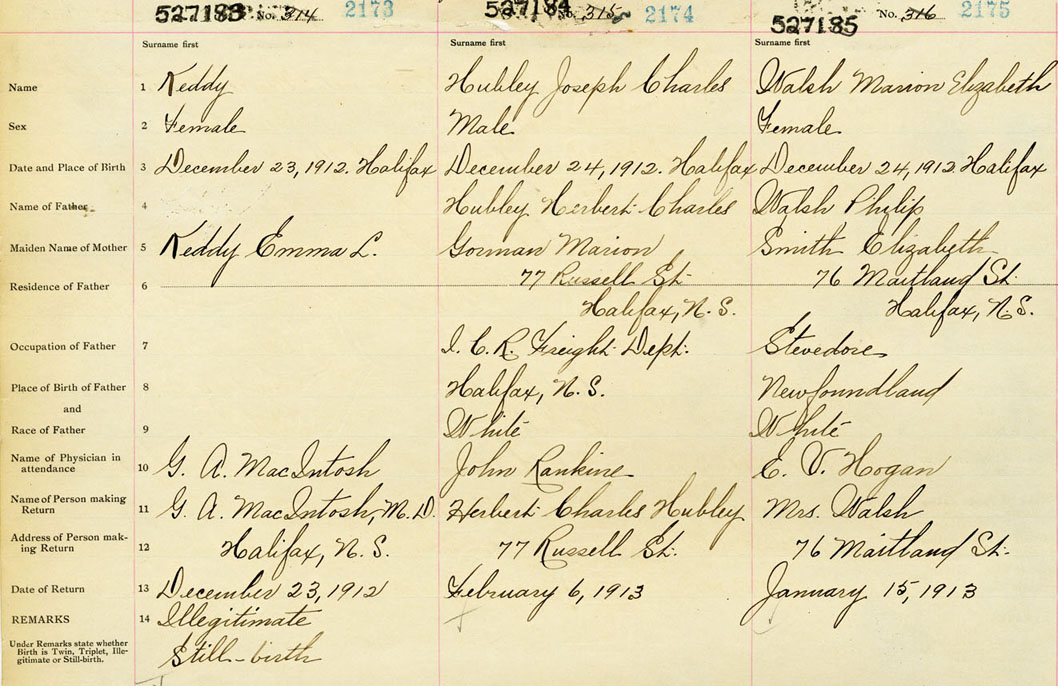 527183 No. 314 2173
527184 No. 315 2174
527185 No. 316 2175
Surname first Surname first Surname first
Name 1 Keddy Hubley Joseph Charles Walsh Marion Elizabeth
Sex 2 Female Male Female
Date and Place of Birth 3 December 23, 1912. Halifax December 24, 1912. Halifax December 24, 1912 Halifax
Name of Father 4 Hubley Herbert Charles Walsh Philip
Maiden Name of Mother 5 Keddy Emma L. Gorman Marion Smith Elizabeth
Residence of Father 6 77 Russell St. 76 Maitland St.
Halifax, N. S. Halifax, N. S.
Occupation of Father 7 I. C. R. Freight Dept. Stevedore
Place of Birth of Father 8 Halifax, N. S. Newfoundland
and
Race of Father 9 White White
Name of Physician in
attendance 10 G. A. MacIntosh John Rankine E. V. Hogan
Name of Person making
Return 11 G. A. MacIntosh, M. D. Herbert Charles Hubley Mrs. Walsh
Address of Person mak-
ing Return 12 Halifax, N. S. 77 Russell St. 76 Maitland St.
Date of Return 13 December 23, 1912 February 6, 1913 January 15, 1913
REMARKS 14 Illegitimate
Under Remarks state whether
Birth is Twin, Triplet, Ille-
gitimate or Still-birth.
Still-birth